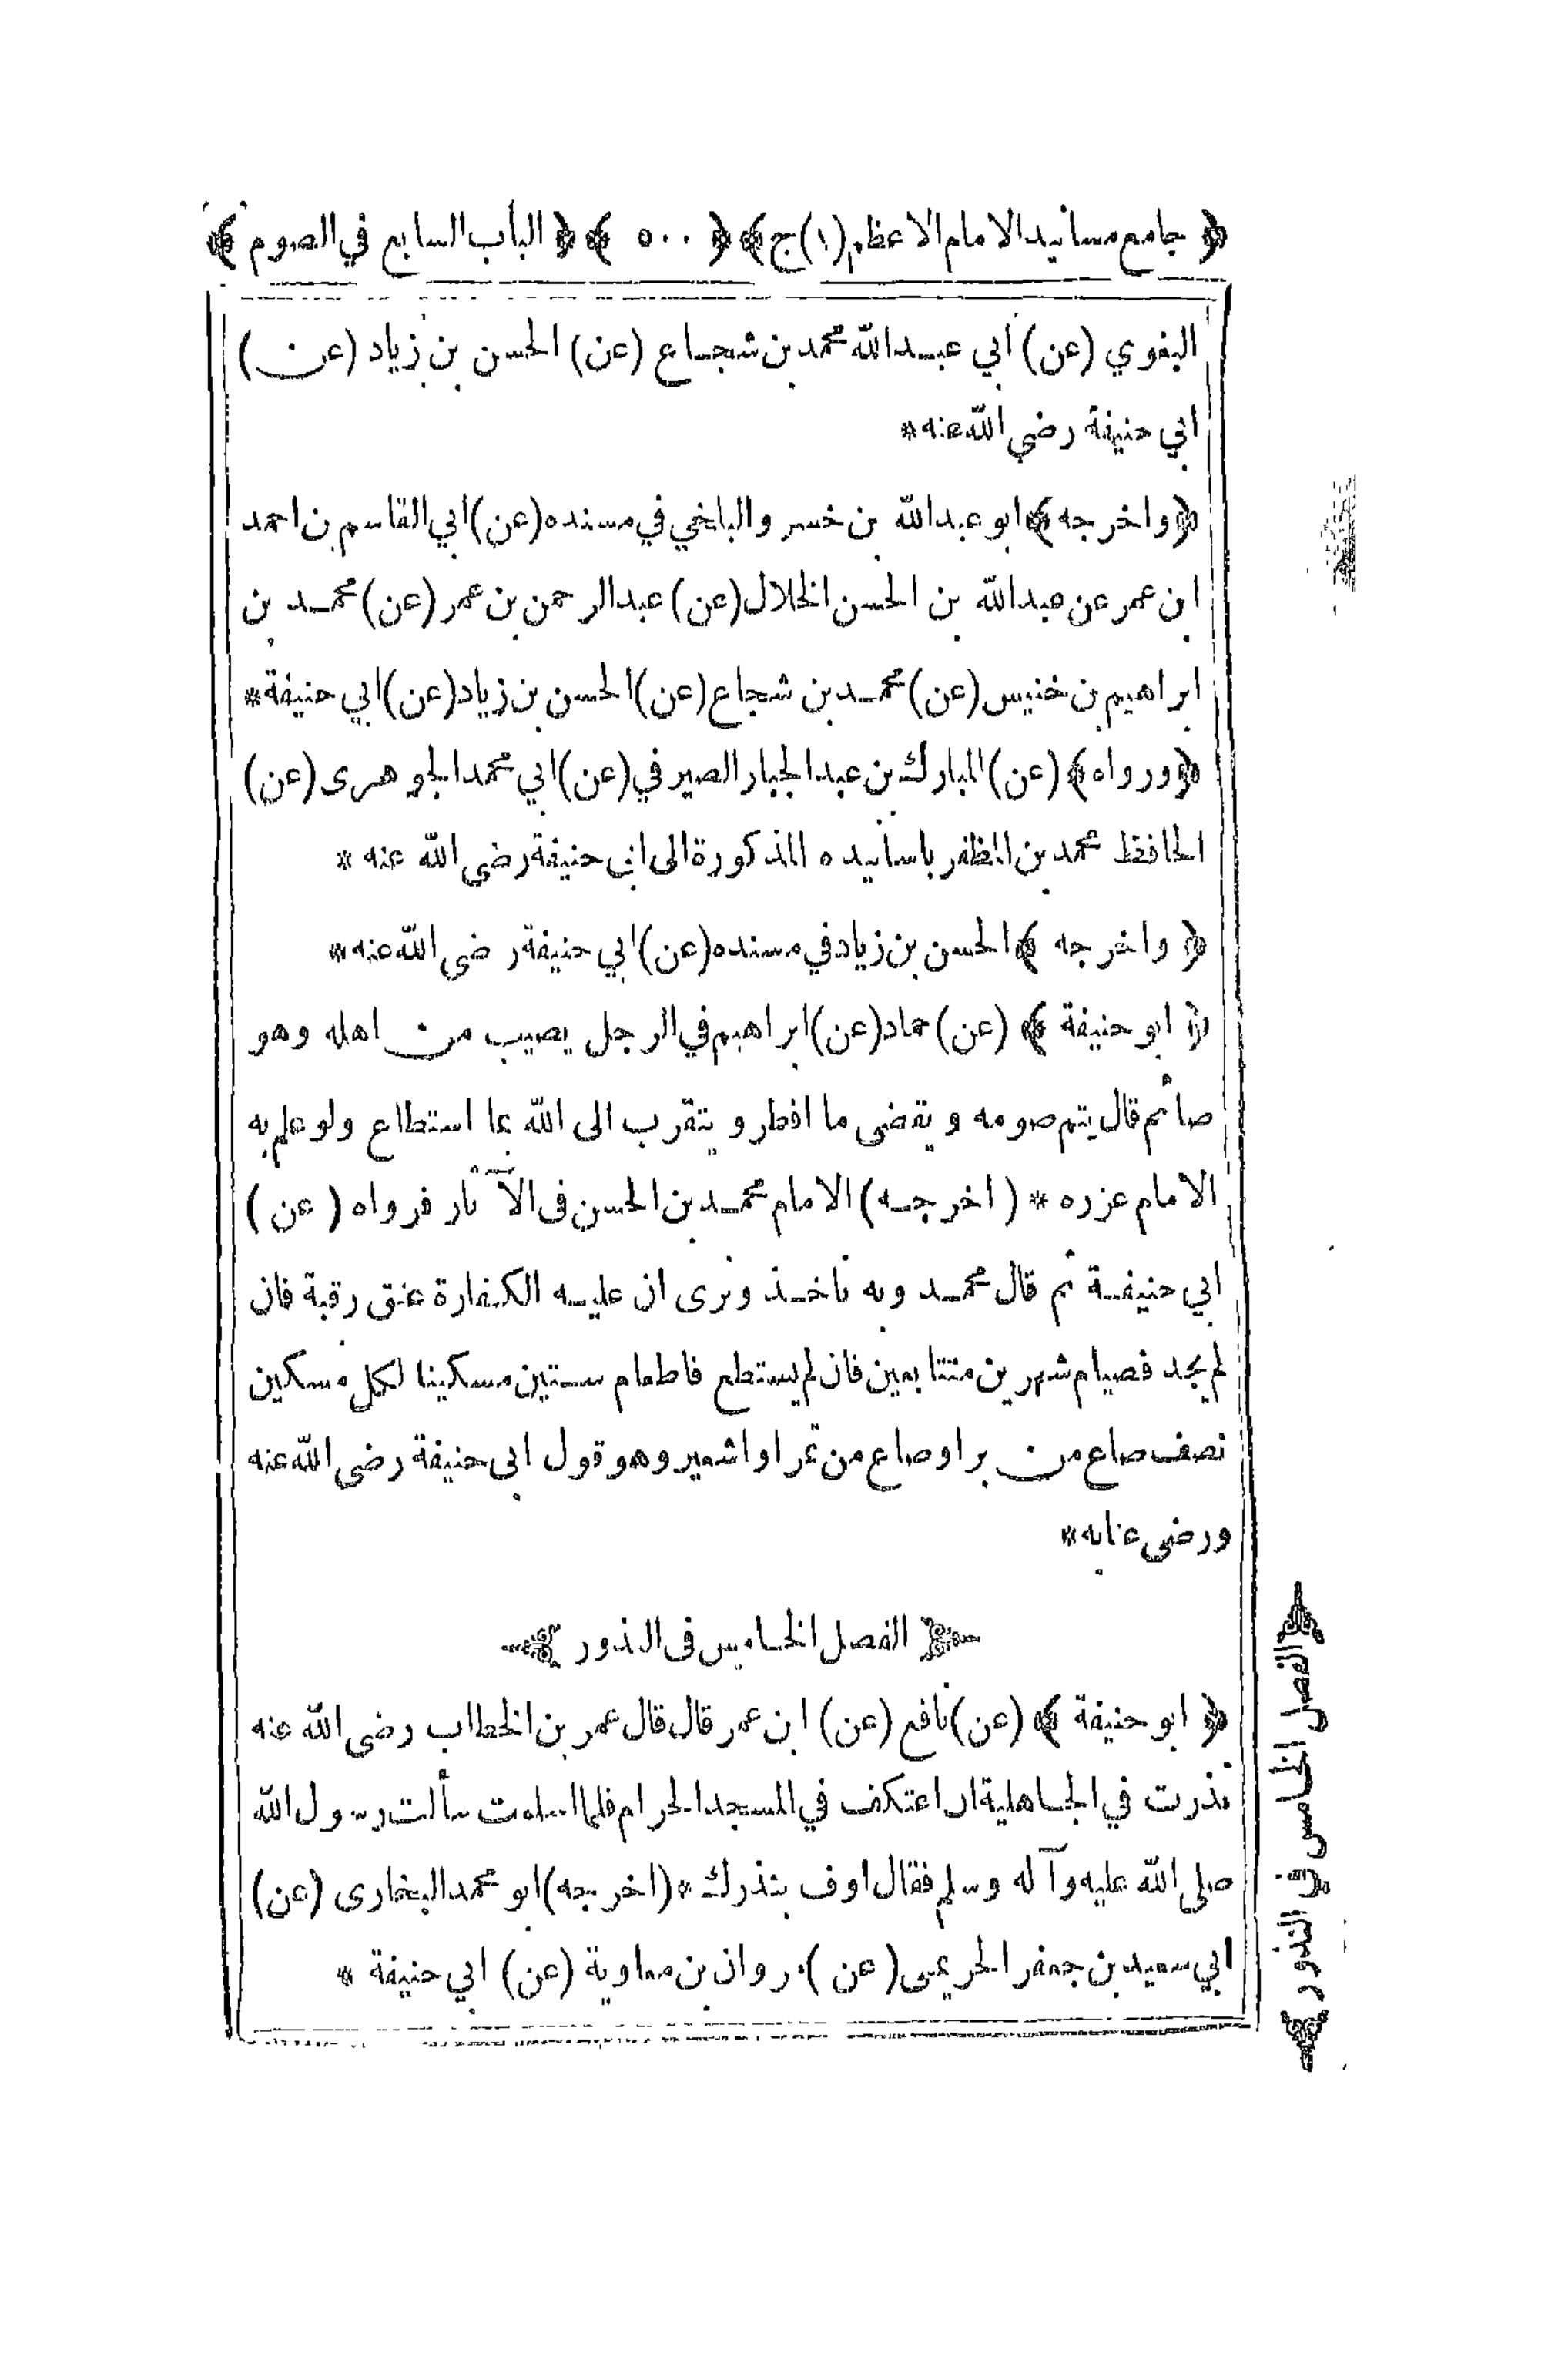 ﴿ جامع مسانيد الامام الاعظم (١) ج ﴾ ﴿ ٥٠٠ ﴾ ﴿ الباب السابع في الصوم ﴾
البغوي (عن) ابي عبد الله محمد بن شجاع (عن) الحسن بن زياد (عن)
ابي حنيفة رضي الله عنه *
﴿ واخرجه ﴾ ابو عبد الله بن خسرو البلخي في مسنده (عن) ابي القاسم بن احمد
ابن عمر عن عبد الله بن الحسن الخلال (عن) عبد الرحمن بن عمر (عن) محمد بن
ابراهيم بن خنيس (عن) محمد بن شجاع (عن) الحسن بن زياد (عن) ابي حنيفة *
﴿ ورواه ﴾ (عن) المبارك بن عبد الجبار الصير في (عن) ابي محمد الجوهرى (عن)
الحافظ محمد بن المظفر باسانيده المذكورة الى ابي حنيفة رضى الله عنه *
﴿ واخرجه ﴾ الحسن بن زياد في مسنده (عن) ابي حنيفة رضى الله عنه *
﴿ ابو حنيفة ﴾ (عن) حماد (عن) ابراهيم في الرجل يصيب من اهله وهو
صائم قال يتم صومه ويقضى ما افطر ويتقرب الى الله بما استطاع ولو علم به
الامام عزره * (اخرجه) الامام محمد بن الحسن فى الآثار فرواه (عن)
ابي حنيفة ثم قال محمد وبه ناخذ ونرى ان عليه الكفارة عتق رقبة فان
لم يجد فصيام شهرين متتابعين فان لم يستطع فاطعام ستين مسكينا لكل مسكين
نصف صاع من بر او صاع من تمر او اشعير وهو قول ابى حنيفة رضى الله عنه
ورضى عنابه *
الفصل الخامس فى النذور
﴿ ابو حنيفة ﴾ (عن) نافع (عن) ابن عمر قال قال عمر بن الخطاب رضى الله عنه
نذرت في الجاهلية ان اعتكف في المسجد الحرام فلما اسلمت سألت رسول الله
صلى الله عليه وآله وسلم فقال اوف بنذرك * (اخرجه) ابو محمد البخارى (عن)
ابي سعيد بن جعفر الحريمى (عن) مروان بن معاوية (عن) ابي حنيفة *
الفصل الخامس في النذور